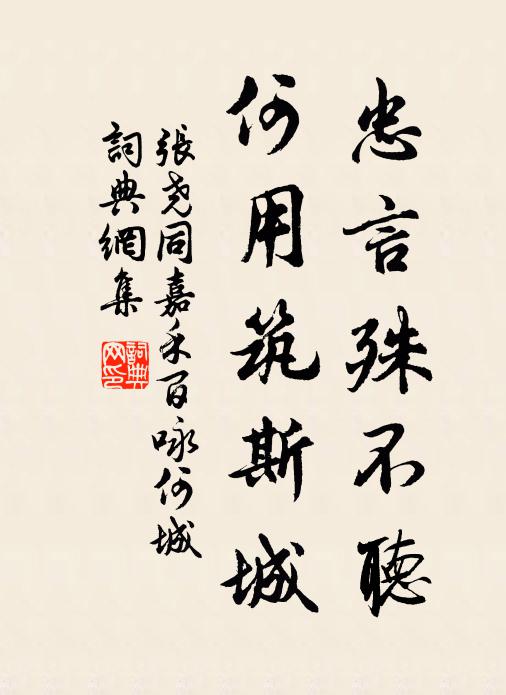 忠言殊不聽
何用筑斯城
張尧同嘉禾百咏何城
詞典網集
詞典网印